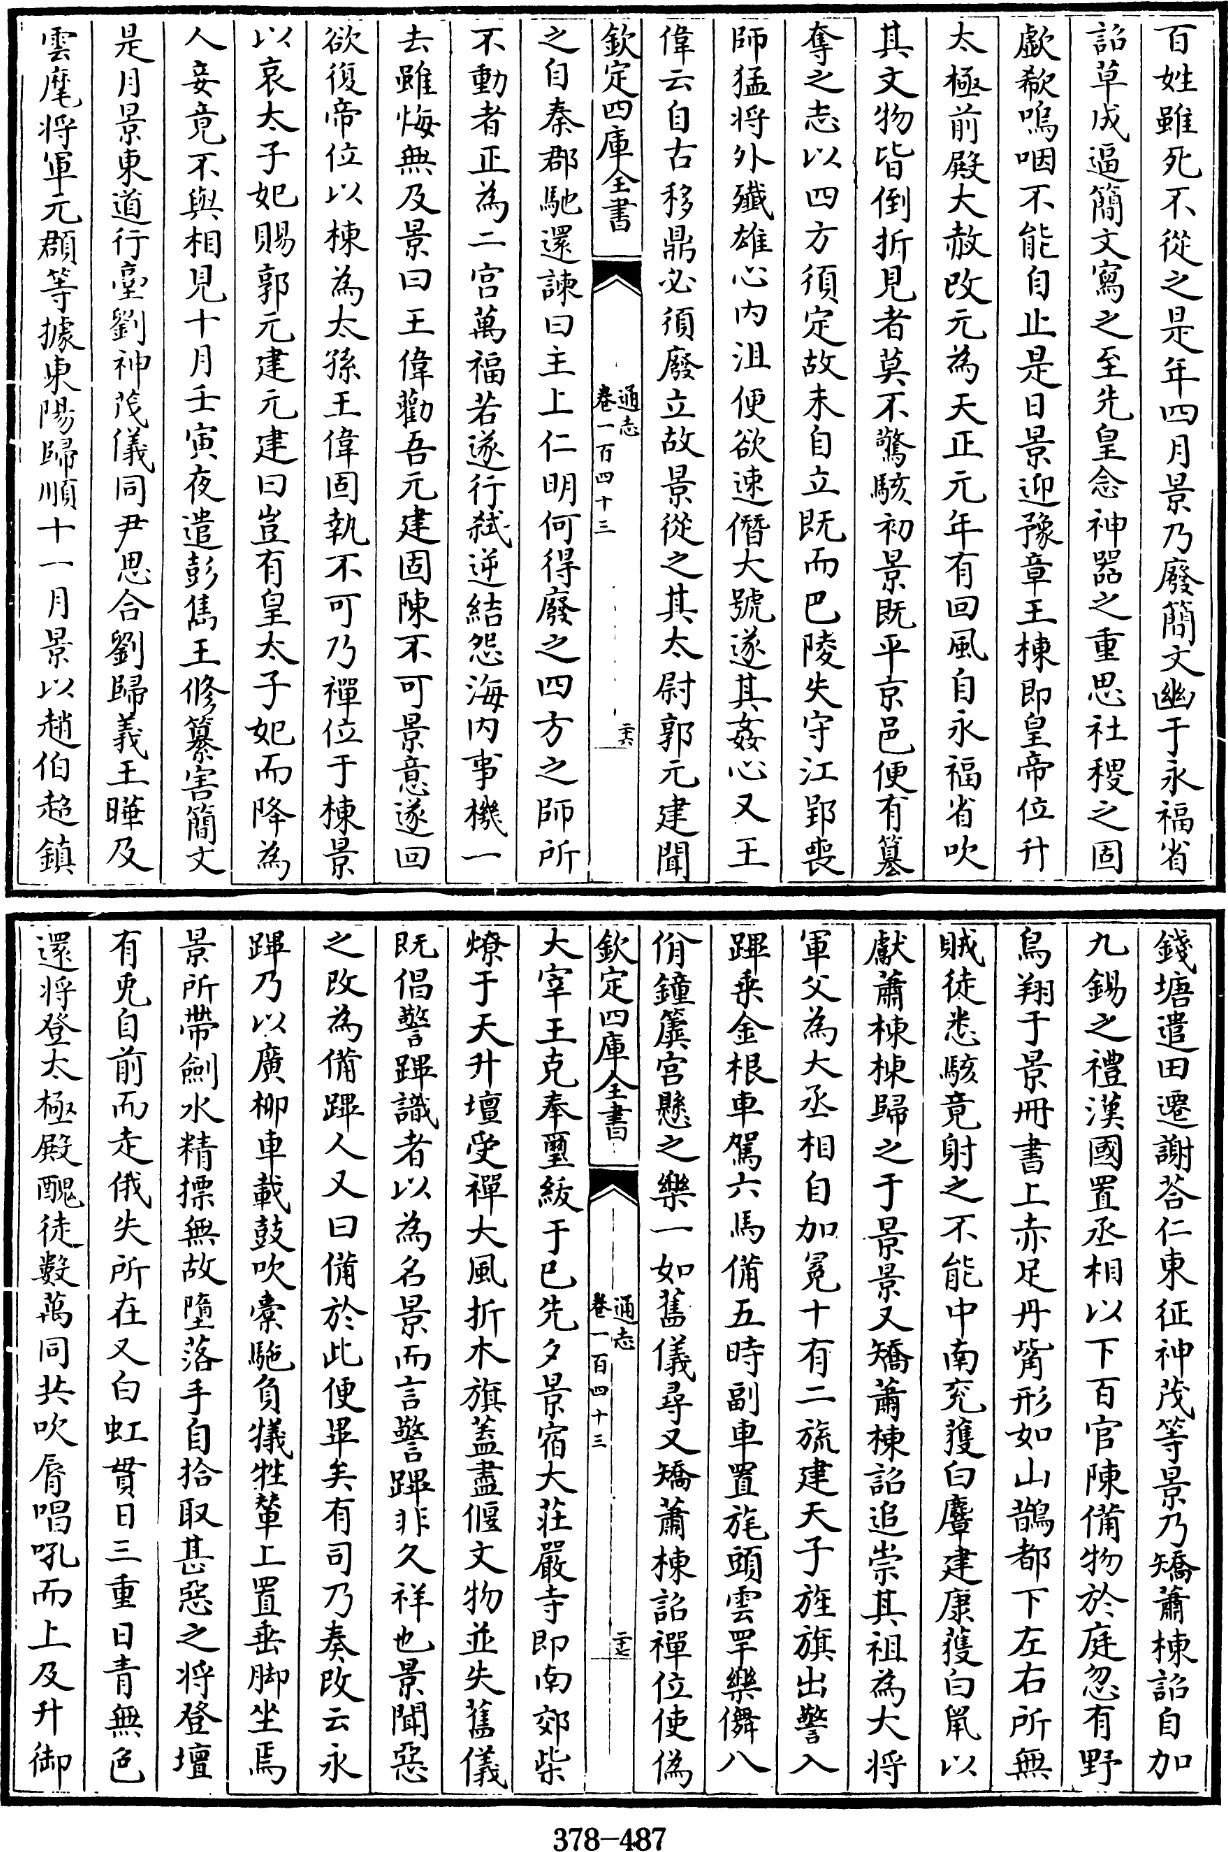 百姓雖死不從之是年四月景乃廢簡文幽于永福省
詔草成逼簡文寫之至先皇念神器之重思社稷之固
歔欷嗚咽不能自止是日景迎豫章王棟即皇帝位升
太極前殿大赦改元為天正元年有回風自永福省吹
其文物皆倒折見者莫不驚駭初景既平京邑便有簒
奪之志以四方須定故未自立既而巴陵失守江郢喪
師猛将外殲雄心内沮便欲速僭大號遂其姦心又王
偉云自古移鼎必須廢立故景從之其太尉郭元建聞
欽定四庫全書
通志
卷一百四十三
二十六
之自秦郡馳還諫曰主上仁明何得廢之四方之師所
不動者正為二宮萬福若遂行弑逆結怨海内事機一
去雖悔無及景曰王偉勸吾元建固陳不可景意遂回
欲復帝位以棟為太孫王偉固執不可乃禪位于棟景
以哀太子妃賜郭元建元建曰豈有皇太子妃而降為
人妾竟不與相見十月壬寅夜遣彭雋王修纂害簡文
是月景東道行臺劉神茂儀同尹思合劉歸義王曄及
雲麾将軍元頵等據東陽歸順十一月景以趙伯超鎮
錢塘遣田遷謝荅仁東征神茂等景乃矯蕭棟詔自加
九錫之禮漢國置丞相以下百官陳備物於庭忽有野
鳥翔于景冊書上赤足丹觜形如山鵲都下左右所無
賊徒悉駭竟射之不能中南兖獲白麞建康獲白鼠以
獻蕭棟棟歸之于景景又矯蕭棟詔追崇其祖為大将
軍父為大丞相自加冕十有二旒建天子旌旗出警入
蹕乗金根車駕六馬備五時副車置旄頭雲罕樂儛八
佾鐘簴宫懸之樂一如舊儀尋又矯蕭棟詔禪位使偽
欽定四庫全書
通志
卷一百四十三
二十七
大宰王克奉璽紱于已先夕景宿大莊嚴寺即南郊柴
燎于天升壇受禪大風折木旗蓋盡偃文物並失舊儀
既倡警蹕識者以為名景而言警蹕非久祥也景聞惡
之改為備蹕人又曰備於此便畢矣有司乃奏改云永
蹕乃以廣柳車載鼓吹橐駞負犧牲輦上置垂脚坐焉
景所帶劍水精摽無故墮落手自拾取甚惡之将登壇
有兎自前而走俄失所在又白虹貫日三重日青無色
還将登太極殿醜徒數萬同共吹脣唱吼而上及升御
378-487